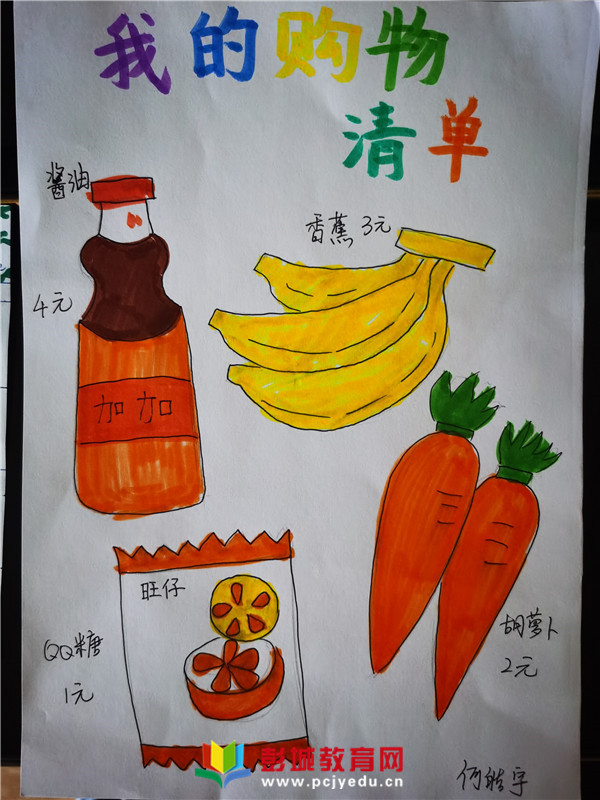 我的购物
清单
酱油
4元
加加
香蕉 3元
旺仔
QQ糖
1元
胡萝卜
2元
何皓宇
彭城教育网
www.pcjyedu.cn